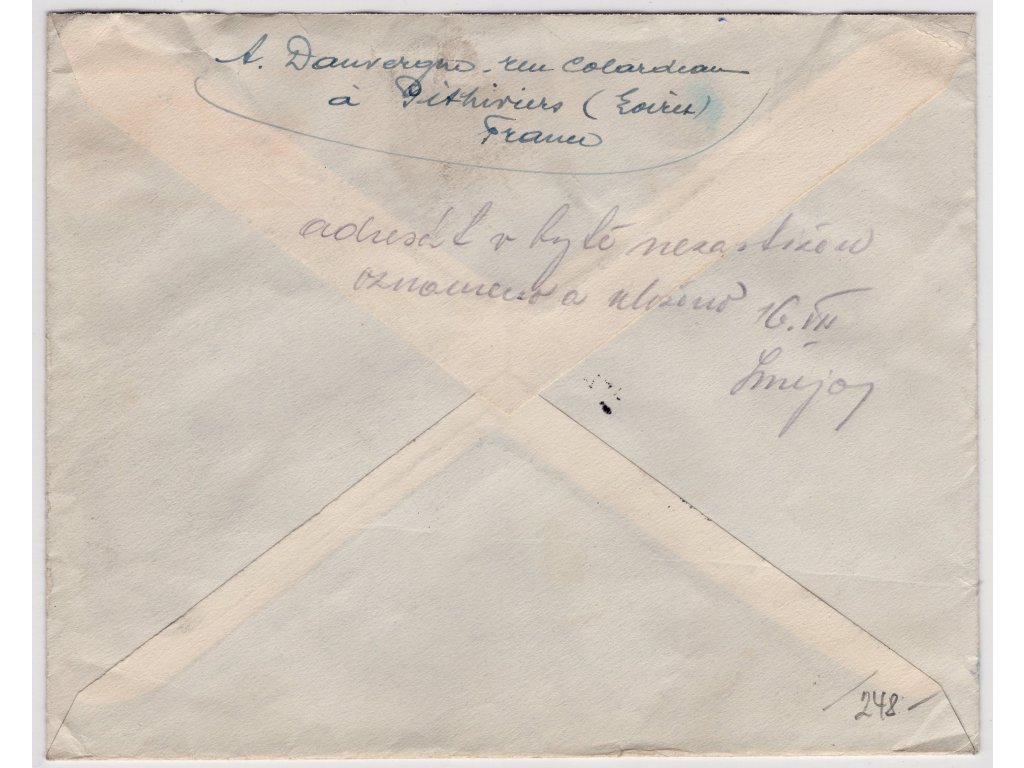 A. Dauvergne - rue Colardeau
à Pithiviers (Loiret)
France
adresát v bytě nezastižen
oznámeno a uloženo 16. VII
248